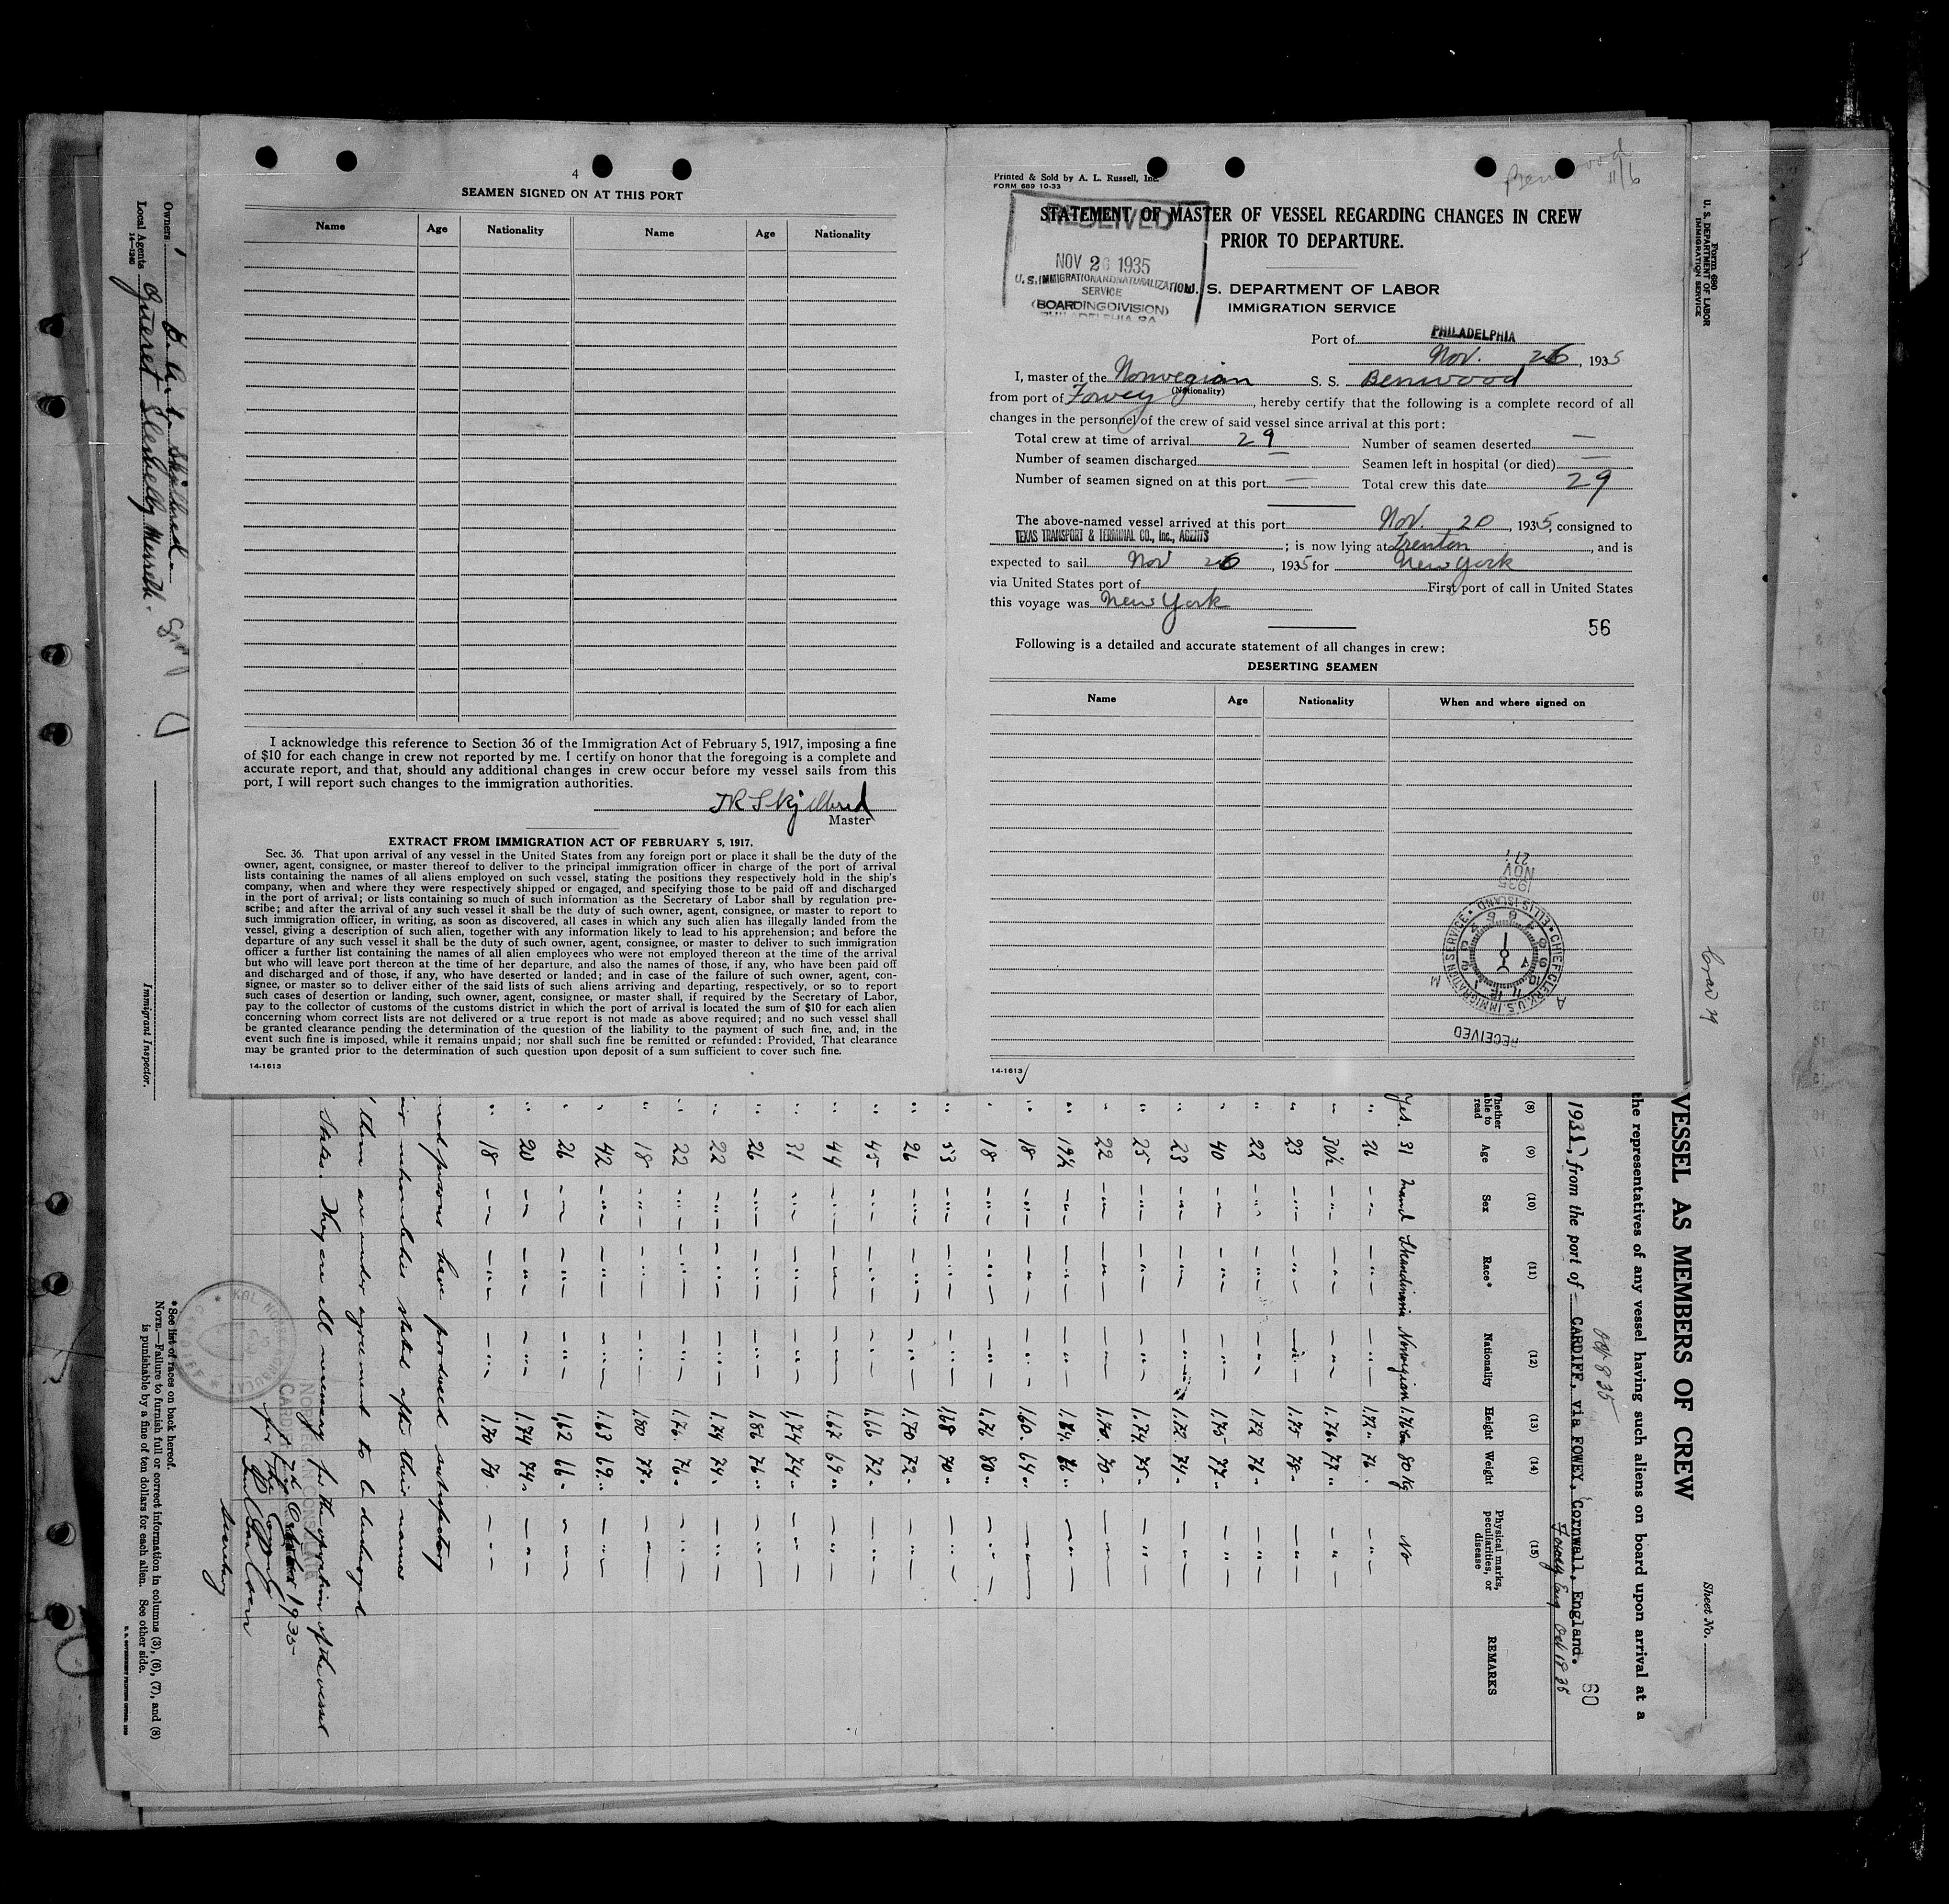 4
SEAMEN SIGNED ON AT THIS PORT
Name Age Nationality Name Age Nationality
I acknowledge this reference to Section 36 of the Immigration Act of February 5, 1917, imposing a fine
of $10 for each change in crew not reported by me. I certify on honor that the foregoing is a complete and
accurate report, and that, should any additional changes in crew occur before my vessel sails from this
port, I will report such changes to the immigration authorities.
Master
EXTRACT FROM IMMIGRATION ACT OF FEBRUARY 5, 1917.
Sec. 36. That upon arrival of any vessel in the United States from any foreign port or place it shall be the duty of the
owner, agent, consignee, or master thereof to deliver to the principal immigration officer in charge of the port of arrival
lists containing the names of all aliens employed on such vessel, stating the positions they respectively hold in the ship's
company, when and where they were respectively shipped or engaged, and specifying those to be paid off and discharged
in the port of arrival; or lists containing so much of such information as the Secretary of Labor shall by regulation pre-
scribe; and after the arrival of any such vessel it shall be the duty of such owner, agent, consignee, or master to report to
such immigration officer, in writing, as soon as discovered, all cases in which any such alien has illegally landed from the
vessel, giving a description of such alien, together with any information likely to lead to his apprehension; and before the
departure of any such vessel it shall be the duty of such owner, agent, consignee, or master to deliver to such immigration
officer a further list containing the names of all alien employees who were not employed thereon at the time of the arrival
but who will leave port thereon at the time of her departure, and also the names of those, if any, who have been paid off
and discharged and of those, if any, who have deserted or landed; and in case of the failure of such owner, agent, con-
signee, or master so to deliver either of the said lists of such aliens arriving and departing, respectively, or so to report
such cases of desertion or landing, such owner, agent, consignee, or master shall, if required by the Secretary of Labor,
pay to the collector of customs of the customs district in which the port of arrival is located the sum of $10 for each alien
concerning whom correct lists are not delivered or a true report is not made as above required; and no such vessel shall
be granted clearance pending the determination of the question of the liability to the payment of such fine, and, in the
event such fine is imposed, while it remains unpaid; nor shall such fine be remitted or refunded: Provided, That clearance
may be granted prior to the determination of such question upon deposit of a sum sufficient to cover such fine.
14-1613
Benwood
11/6
Printed & Sold by A. L. Russell, Inc.
FORM 689 10-33
STATEMENT OF MASTER OF VESSEL REGARDING CHANGES IN CREW
PRIOR TO DEPARTURE.
RECEIVED
NOV 26 1935
U. S. IMMIGRATION AND NATURALIZATION
SERVICE
(BOARDING DIVISION)
PHILADELPHIA PA
U. S. DEPARTMENT OF LABOR
IMMIGRATION SERVICE
Port of PHILADELPHIA
Nov. 26, 1935
I, master of the Norwegian S. S. Benwood
(Nationality)
from port of Fowey, hereby certify that the following is a complete record of all
changes in the personnel of the crew of said vessel since arrival at this port:
Total crew at time of arrival 29 Number of seamen deserted —
Number of seamen discharged — Seamen left in hospital (or died) —
Number of seamen signed on at this port — Total crew this date 29
The above-named vessel arrived at this port Nov. 20, 1935, consigned to
TEXAS TRANSPORT & TERMINAL CO., Inc., AGENTS; is now lying at Trenton, and is
expected to sail Nov 26, 1935 for New York
via United States port of First port of call in United States
this voyage was New York
56
Following is a detailed and accurate statement of all changes in crew:
DESERTING SEAMEN
Name Age Nationality When and where signed on
27
NOV
1935
CHIEF CLERK U.S. IMMIGRATION SERVICE • ELLIS ISLAND
RECEIVED
14-1613
Form 680
U. S. DEPARTMENT OF LABOR
IMMIGRATION SERVICE
Sheet No.
VESSEL AS MEMBERS OF CREW
the representatives of any vessel having such aliens on board upon arrival at a
60
1935, from the port of CARDIFF, via FOWEY, Cornwall, England.
Fowey Eng Oct 18 35
(8) (9) (10) (11) (12) (13) (14) (15)
Whether able to read Age Sex Race* Nationality Height Weight Physical marks, peculiarities, or disease REMARKS
Yes. 31 Mand Skandinavia Norwegian 1.76 cm 80 Kg No
26 1.72 76
30½ 1.76 77
23 1.75 78
22 1.72 71
40 1.75 77
23 1.72 74
25 1.74 75
22 1.70 70
19½
18 1.60 64
18 1.76 80
53 1.68 70
26 1.70 72
45 1.66 72
44 1.67 69
31 1.74 74
26 1.86 76
22 1.74 74
22 1.76 76
18 1.80 77
42 1.63 69
26 1.62 66
20 1.74 74
18 1.70 70
persons have produced satisfactory
nationalities stated after their names
them are under agreement to be discharged
States. They are all necessary for the operation of the vessel
Owners
Local Agents
14-1240
Immigrant Inspector.
*See list of races on back hereof.
NOTE.—Failure to furnish full or correct information in columns (3), (6), (7), and (8)
is punishable by a fine of ten dollars for each alien. See other side.